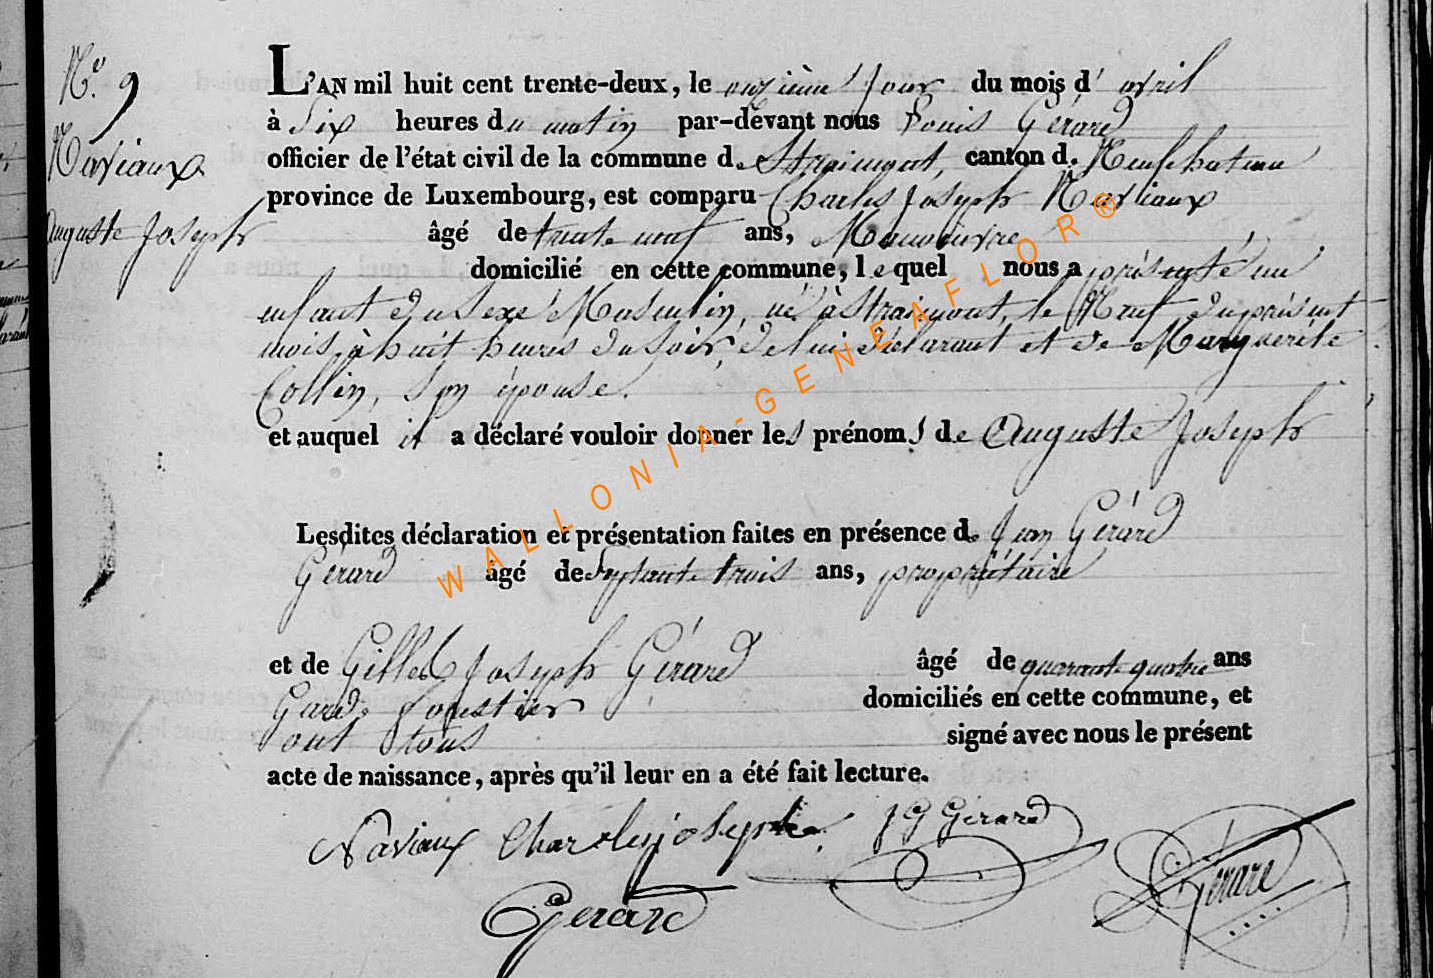 N.º 9
Naviaux
Auguste Joseph
L'AN mil huit cent trente-deux, le onzième jour du mois d' avril
à Six heures du matin par-devant nous Louis Gérard
officier de l'état civil de la commune de Straimont, canton de Neufchateau
province de Luxembourg, est comparu Charles Joseph Naviaux
âgé de trente neuf ans, Manoeuvre
domicilié en cette commune, lequel nous a présenté un
enfant du sexe Masculin, né à Straimont, le Neuf du présent
mois à huit heures du soir, de lui déclarant et de Marguerite
Collin, son épouse.
et auquel il a déclaré vouloir donner les prénoms de Auguste Joseph
Lesdites déclaration et présentation faites en présence de Jean Gérard
Gérard âgé de Septante trois ans, propriétaire
et de Gilles Joseph Gérard âgé de quarante quatre ans
Garde forestier domiciliés en cette commune, et
ont tous signé avec nous le présent
acte de naissance, après qu'il leur en a été fait lecture.
Naviaux Charles joseph J G Gérard
Gerard
Gérard
WALLONIA-GENEAFLOR®